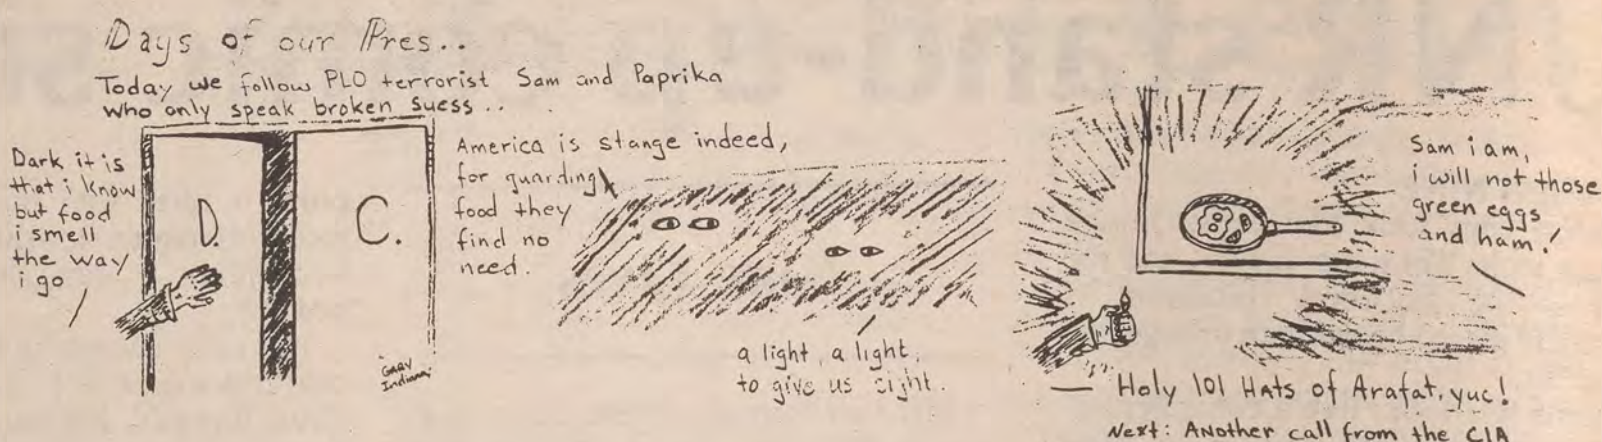 Days of our Pres..
Today we follow PLO terrorist Sam and Paprika
who only speak broken Suess..
Dark it is
that i know
but food
i smell
the way
i go
D.
C.
Gary
Indiana
America is stange indeed,
for guarding
food they
find no
need.
a light, a light,
to give us sight.
Sam i am,
i will not those
green eggs
and ham!
— Holy 101 Hats of Arafat, yuc!
Next: Another call from the CIA